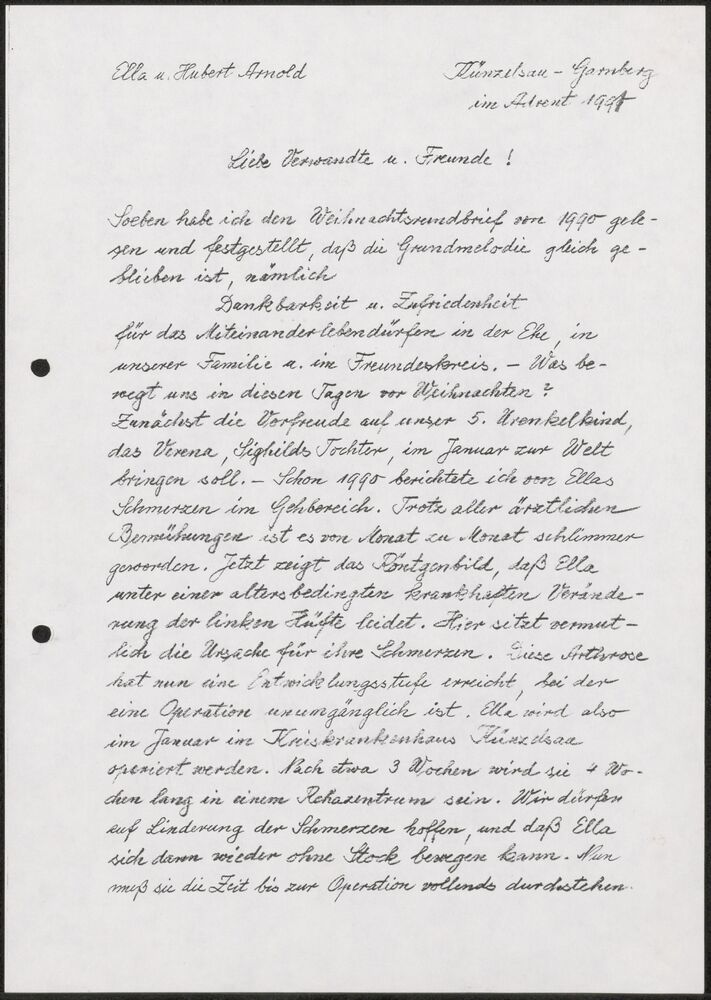 Ella u. Hubert Arnold
Künzelsau - Garnberg
im Advent 1991
Liebe Verwandte u. Freunde !
Soeben habe ich den Weihnachtsrundbrief von 1990 gele-
sen und festgestellt, daß die Grundmelodie gleich ge-
blieben ist, nämlich
Dankbarkeit u. Zufriedenheit
für das Miteinanderlebendürfen in der Ehe, in
unserer Familie u. im Freundeskreis. - Was be-
wegt uns in diesen Tagen vor Weihnachten ?
Zunächst die Vorfreude auf unser 5. Urenkelkind,
das Verena, Sighilds Tochter, im Januar zur Welt
bringen soll. - Schon 1990 berichtete ich von Ellas
Schmerzen im Gehbereich. Trotz aller ärztlichen
Bemühungen ist es von Monat zu Monat schlimmer
geworden. Jetzt zeigt das Röntgenbild, daß Ella
unter einer altersbedingten krankhaften Verände-
rung der linken Hüfte leidet. Hier sitzt vermut-
lich die Ursache für ihre Schmerzen. Diese Arthrose
hat nun eine Entwicklungsstufe erreicht, bei der
eine Operation unumgänglich ist. Ella wird also
im Januar im Kreiskrankenhaus Künzelsau
operiert werden. Nach etwa 3 Wochen wird sie 4 Wo-
chen lang in einem Rehazentrum sein. Wir dürfen
auf Linderung der Schmerzen hoffen, und daß Ella
sich dann wieder ohne Stock bewegen kann. Nun
muß sie die Zeit bis zur Operation vollends durchstehen.